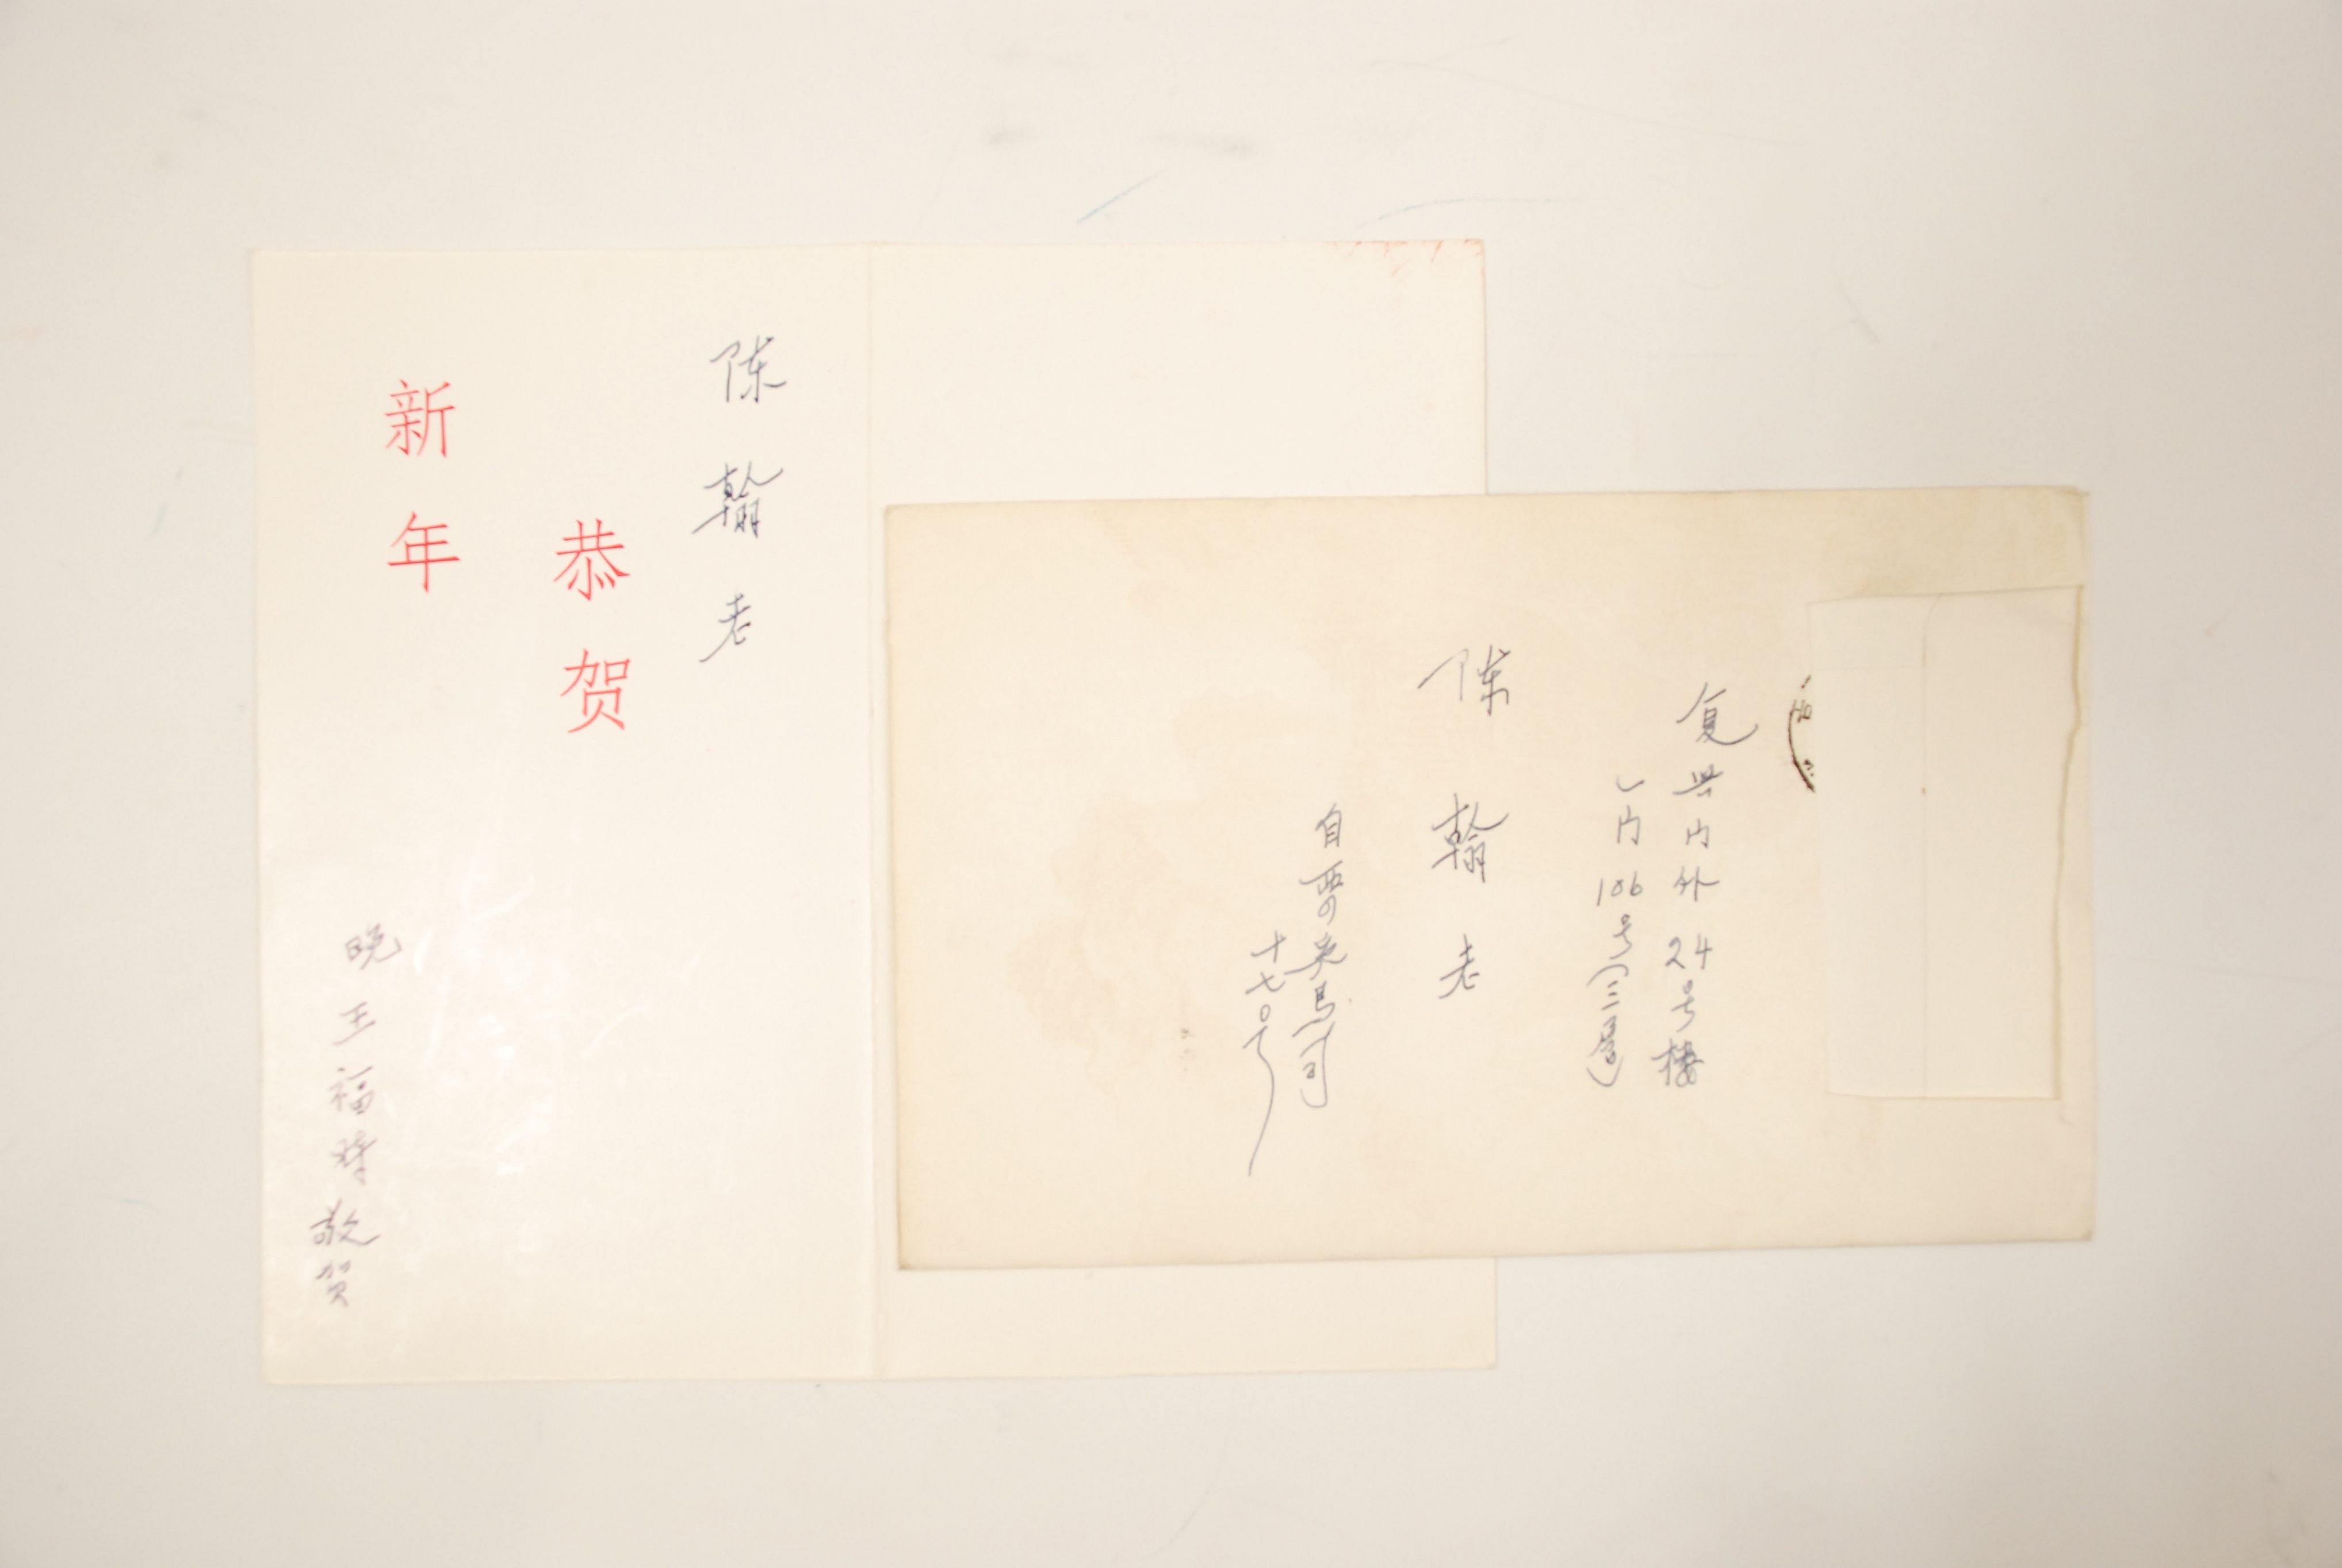 陈翰老
恭贺
新年
晚王福时敬贺
复兴门外24号楼
门106号(三层)
陈翰老
自西
十七号